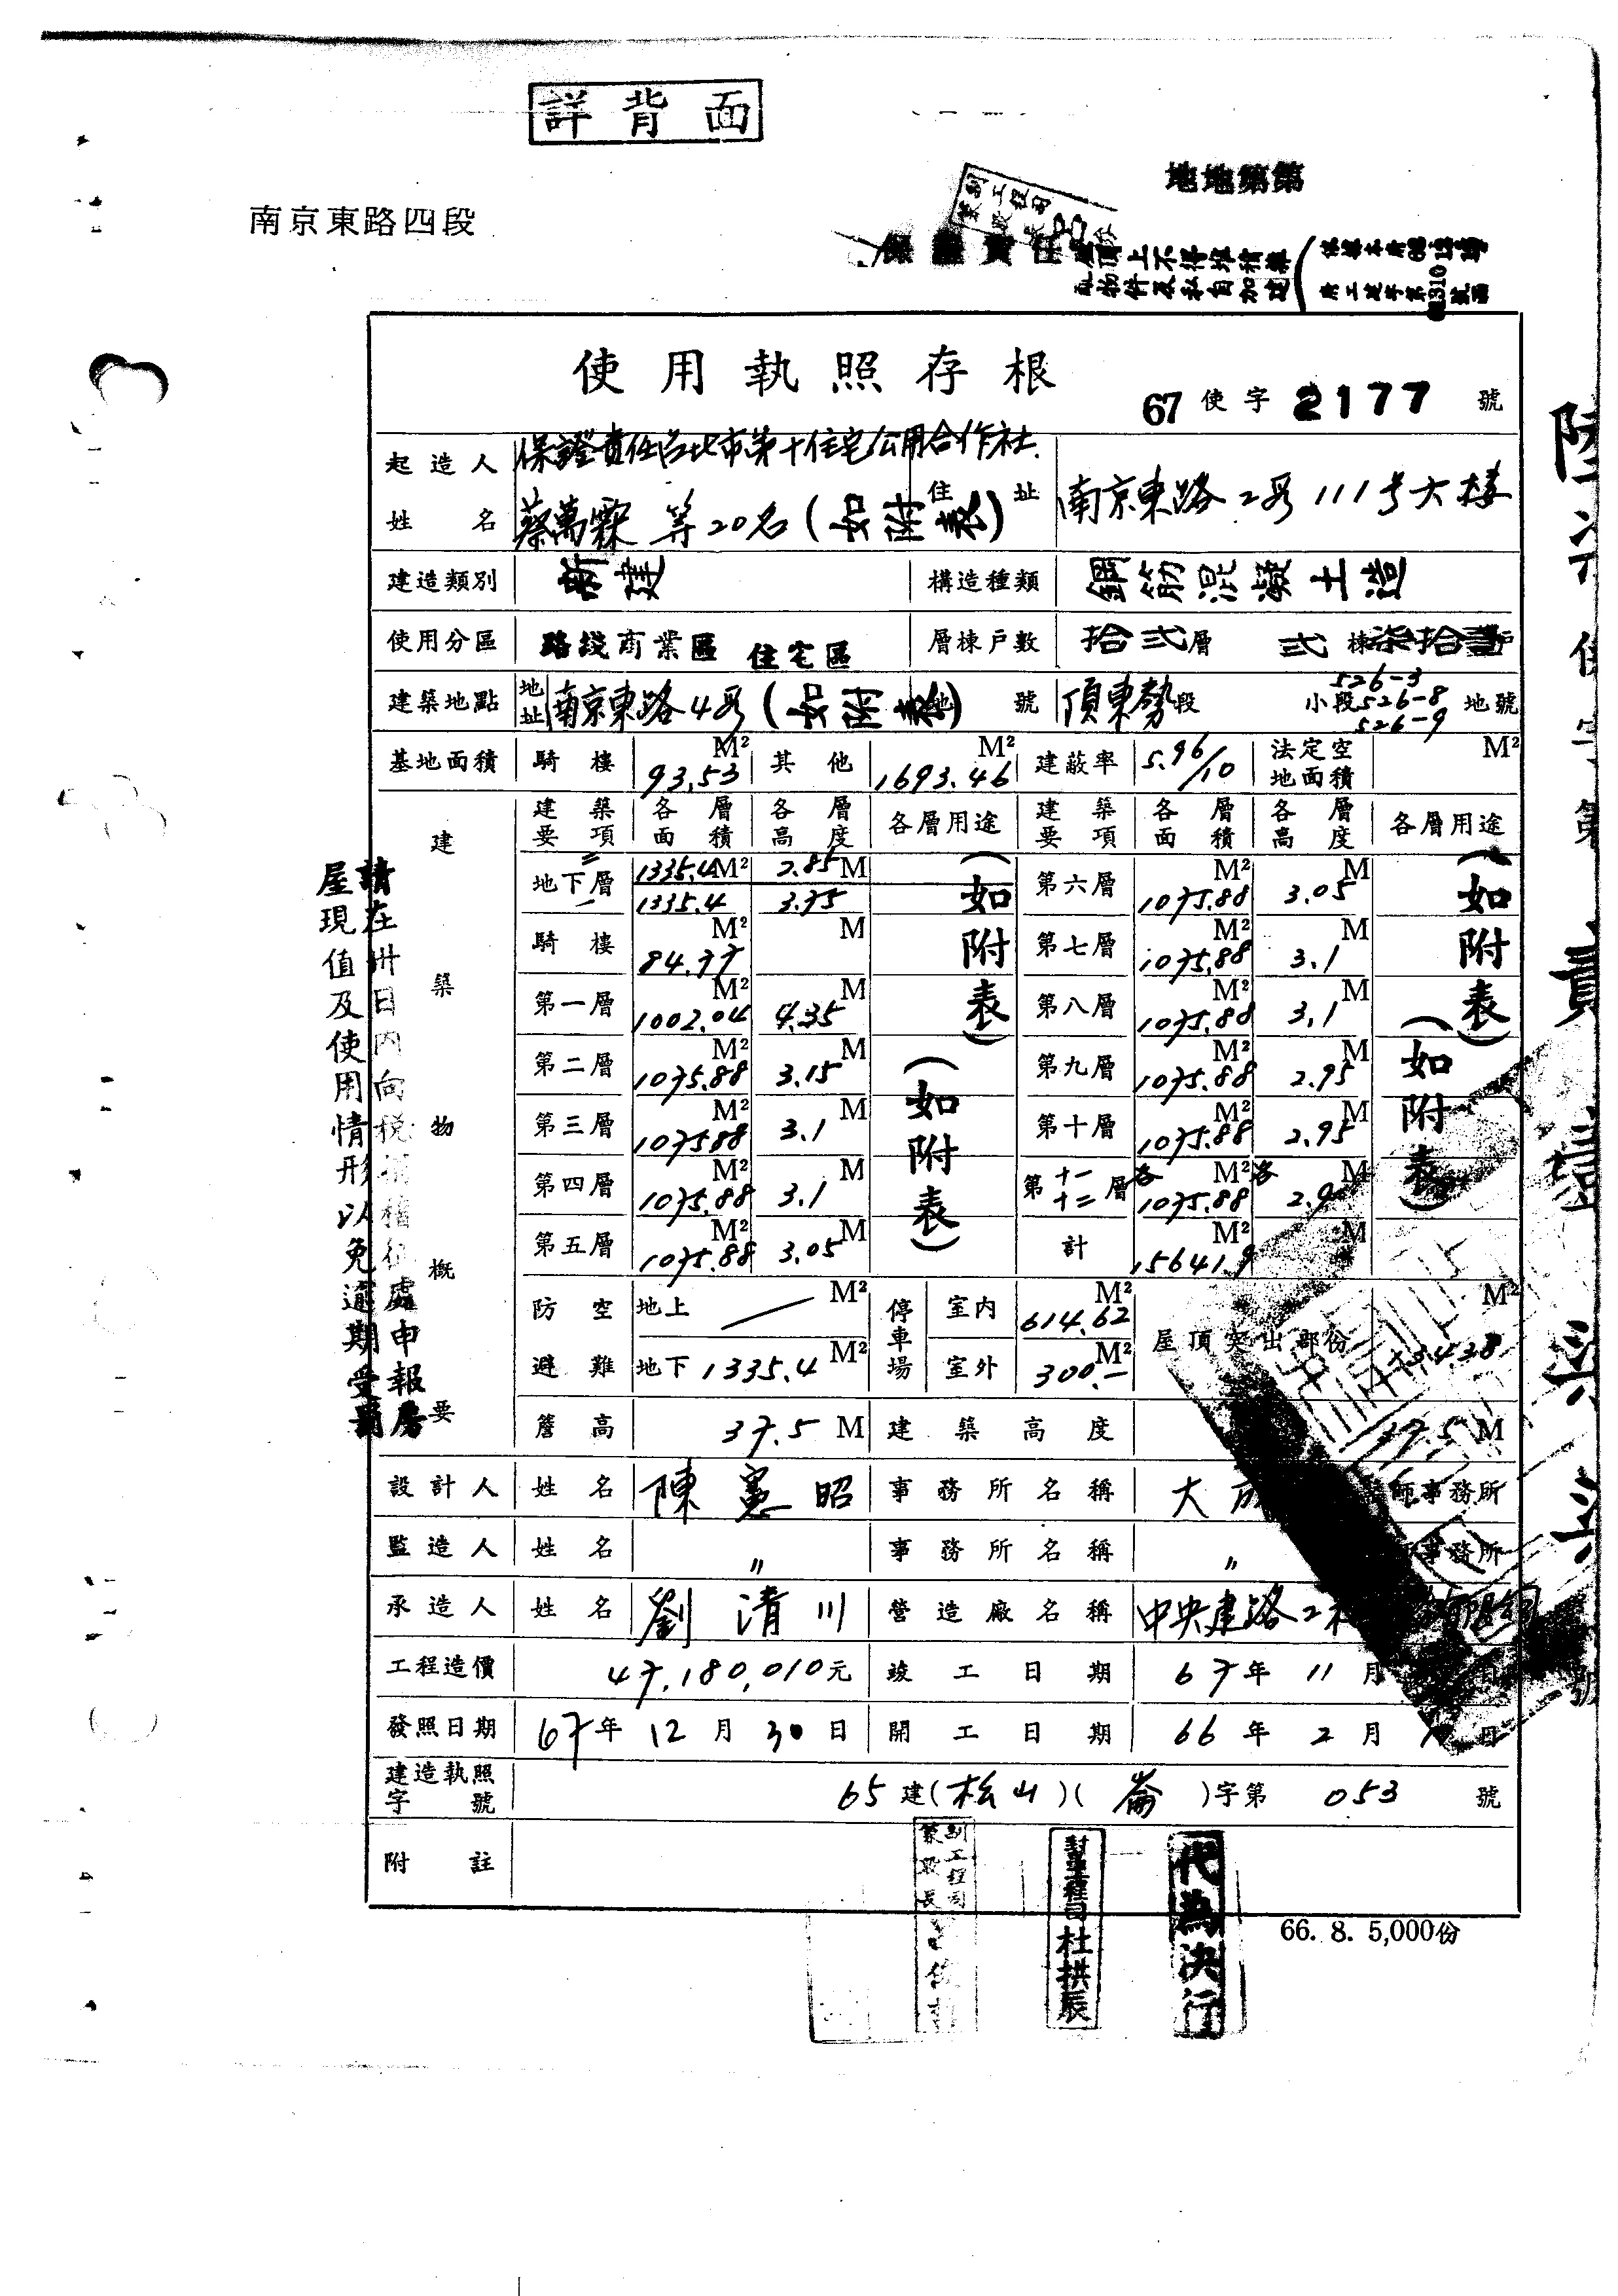 詳背面
南京東路四段
地地第第
保證責任
屋頂上不得堆積雜
亂物件及私自加建
使用執照存根
67使字2177號
起造人姓名 保證責任台北市第十住宅公用合作社
蔡萬霖等20名(如附表) 住址 南京東路2段111号大樓
建造類別 新建 構造種類 鋼筋混凝土造
使用分區 路線商業區 住宅區 層棟戶數 拾弍層 弍棟柒拾
建築地點 地址 南京東路4段(如附表) 地號 頂東勢段 小段 526-3 526-8 526-9 地號
基地面積 騎樓 93.53 M² 其他 1693.46 M² 建蔽率 5.96/10 法定空地面積 M²
建築物概要
建築要項 各層面積 各層高度 各層用途 建築要項 各層面積 各層高度 各層用途
地下層 二 1335.4 M² 2.85 M (如附表) 第六層 1075.88 M² 3.05 M (如附表)
一 1335.4 3.75
騎樓 84.77 M² M 第七層 1075.88 M² 3.1 M
第一層 1002.04 M² 4.35 M 第八層 1075.88 M² 3.1 M
第二層 1075.88 M² 3.15 M (如附表) 第九層 1075.88 M² 2.95 M (如附表)
第三層 1075.88 M² 3.1 M 第十層 1075.88 M² 2.95 M
第四層 1075.88 M² 3.1 M 第十一十二層 各1075.88 M² 各2.9 M
第五層 1075.88 M² 3.05 M 計 15641.9 M² M
防空避難 地上 M² 停車場 室內 614.62 M² 屋頂突出部份 M²
地下 1335.4 M² 室外 300.- M²
簷高 37.5 M 建築高度 37.5 M
設計人 姓名 陳憲昭 事務所名稱 大 師事務所
監造人 姓名 〃 事務所名稱 〃 事務所
承造人 姓名 劉清川 營造廠名稱 中央建路
工程造價 47,180,010元 竣工日期 67年11月 日
發照日期 67年12月30日 開工日期 66年2月 日
建造執照字號 65建(松山)(崙)字第053號
附註
請在卅日內向稅捐稽征處申報房
屋現值及使用情形以免逾期受罰
副工程司
杜拱辰
代為決行
66. 8. 5,000份